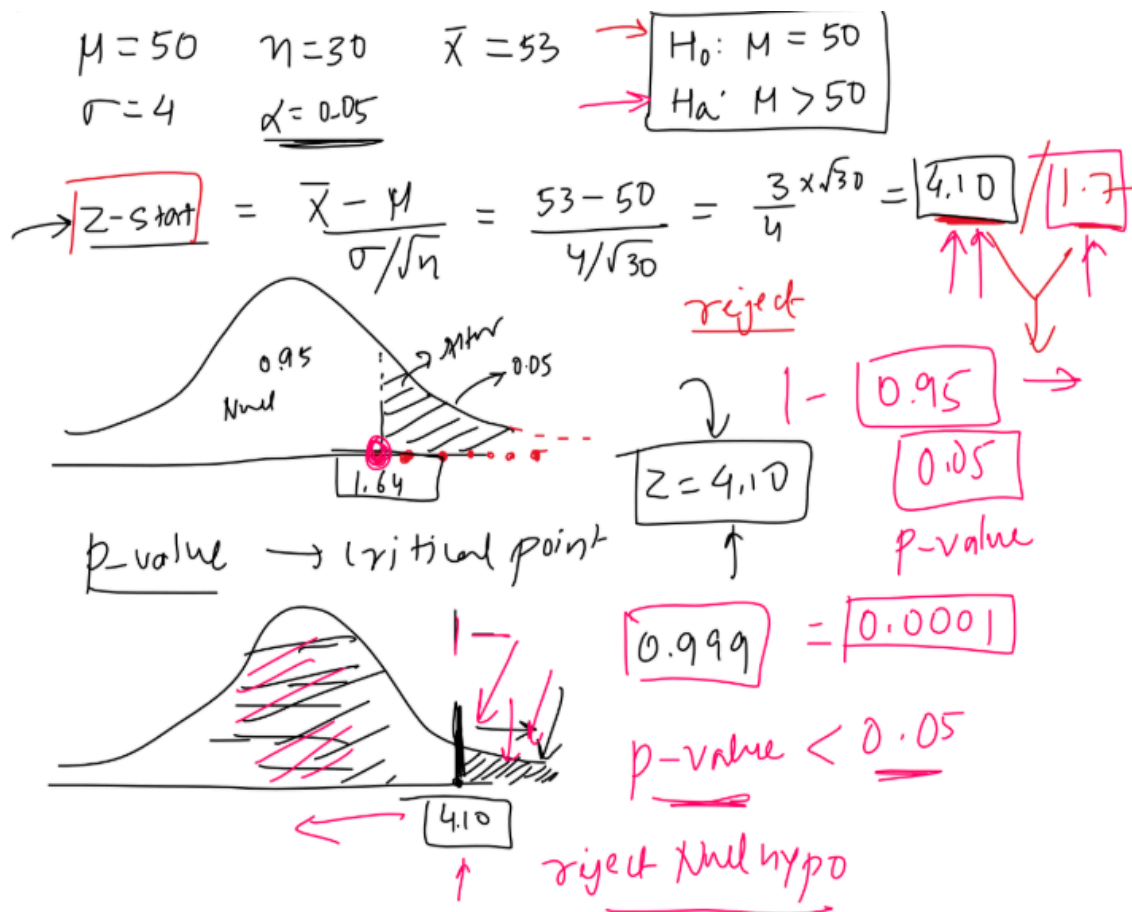 μ = 50 n = 30 x̄ = 53
H₀: M = 50
σ = 4 α = 0.05
Ha: M > 50
Z-Start = x̄ - μ / σ/√n = 53 - 50 / 4/√30 = 3/4 x √30 = 4.10 / 1.7
reject
0.95
Null
Alter
0.05
1 - 0.95
0.05
1.64
Z = 4.10
p-value → critical point
p-value
1 -
0.999 = 0.0001
p-value < 0.05
4.10
reject Null hypo